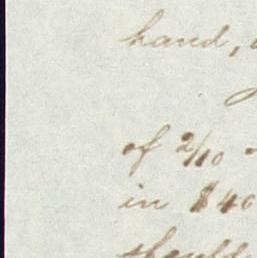 hand,
of 2/10
in $40
should